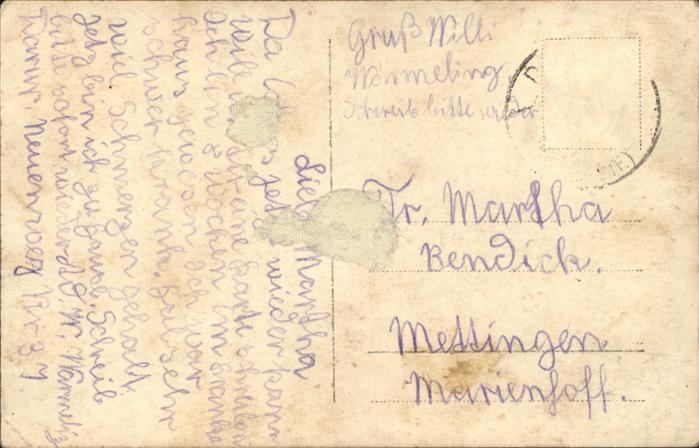 Gruß Willi
Wermeling
Schreib bitte wieder
Fr. Martha
Bendick.
Mettingen
Marienhoff.
Lieb Martha
Da ich es jetz wieder kann
will eine Karte schreiben
Ich bin 8 Wochen im Kranken
haus gewesen Ich war
schwer krank. Hab sehr
viel Schmerzen gehalt.
Jetz bin ich zu hause. Schreib
bitte sofort wieder. W.
Kamr. Neuenweg Nr 37